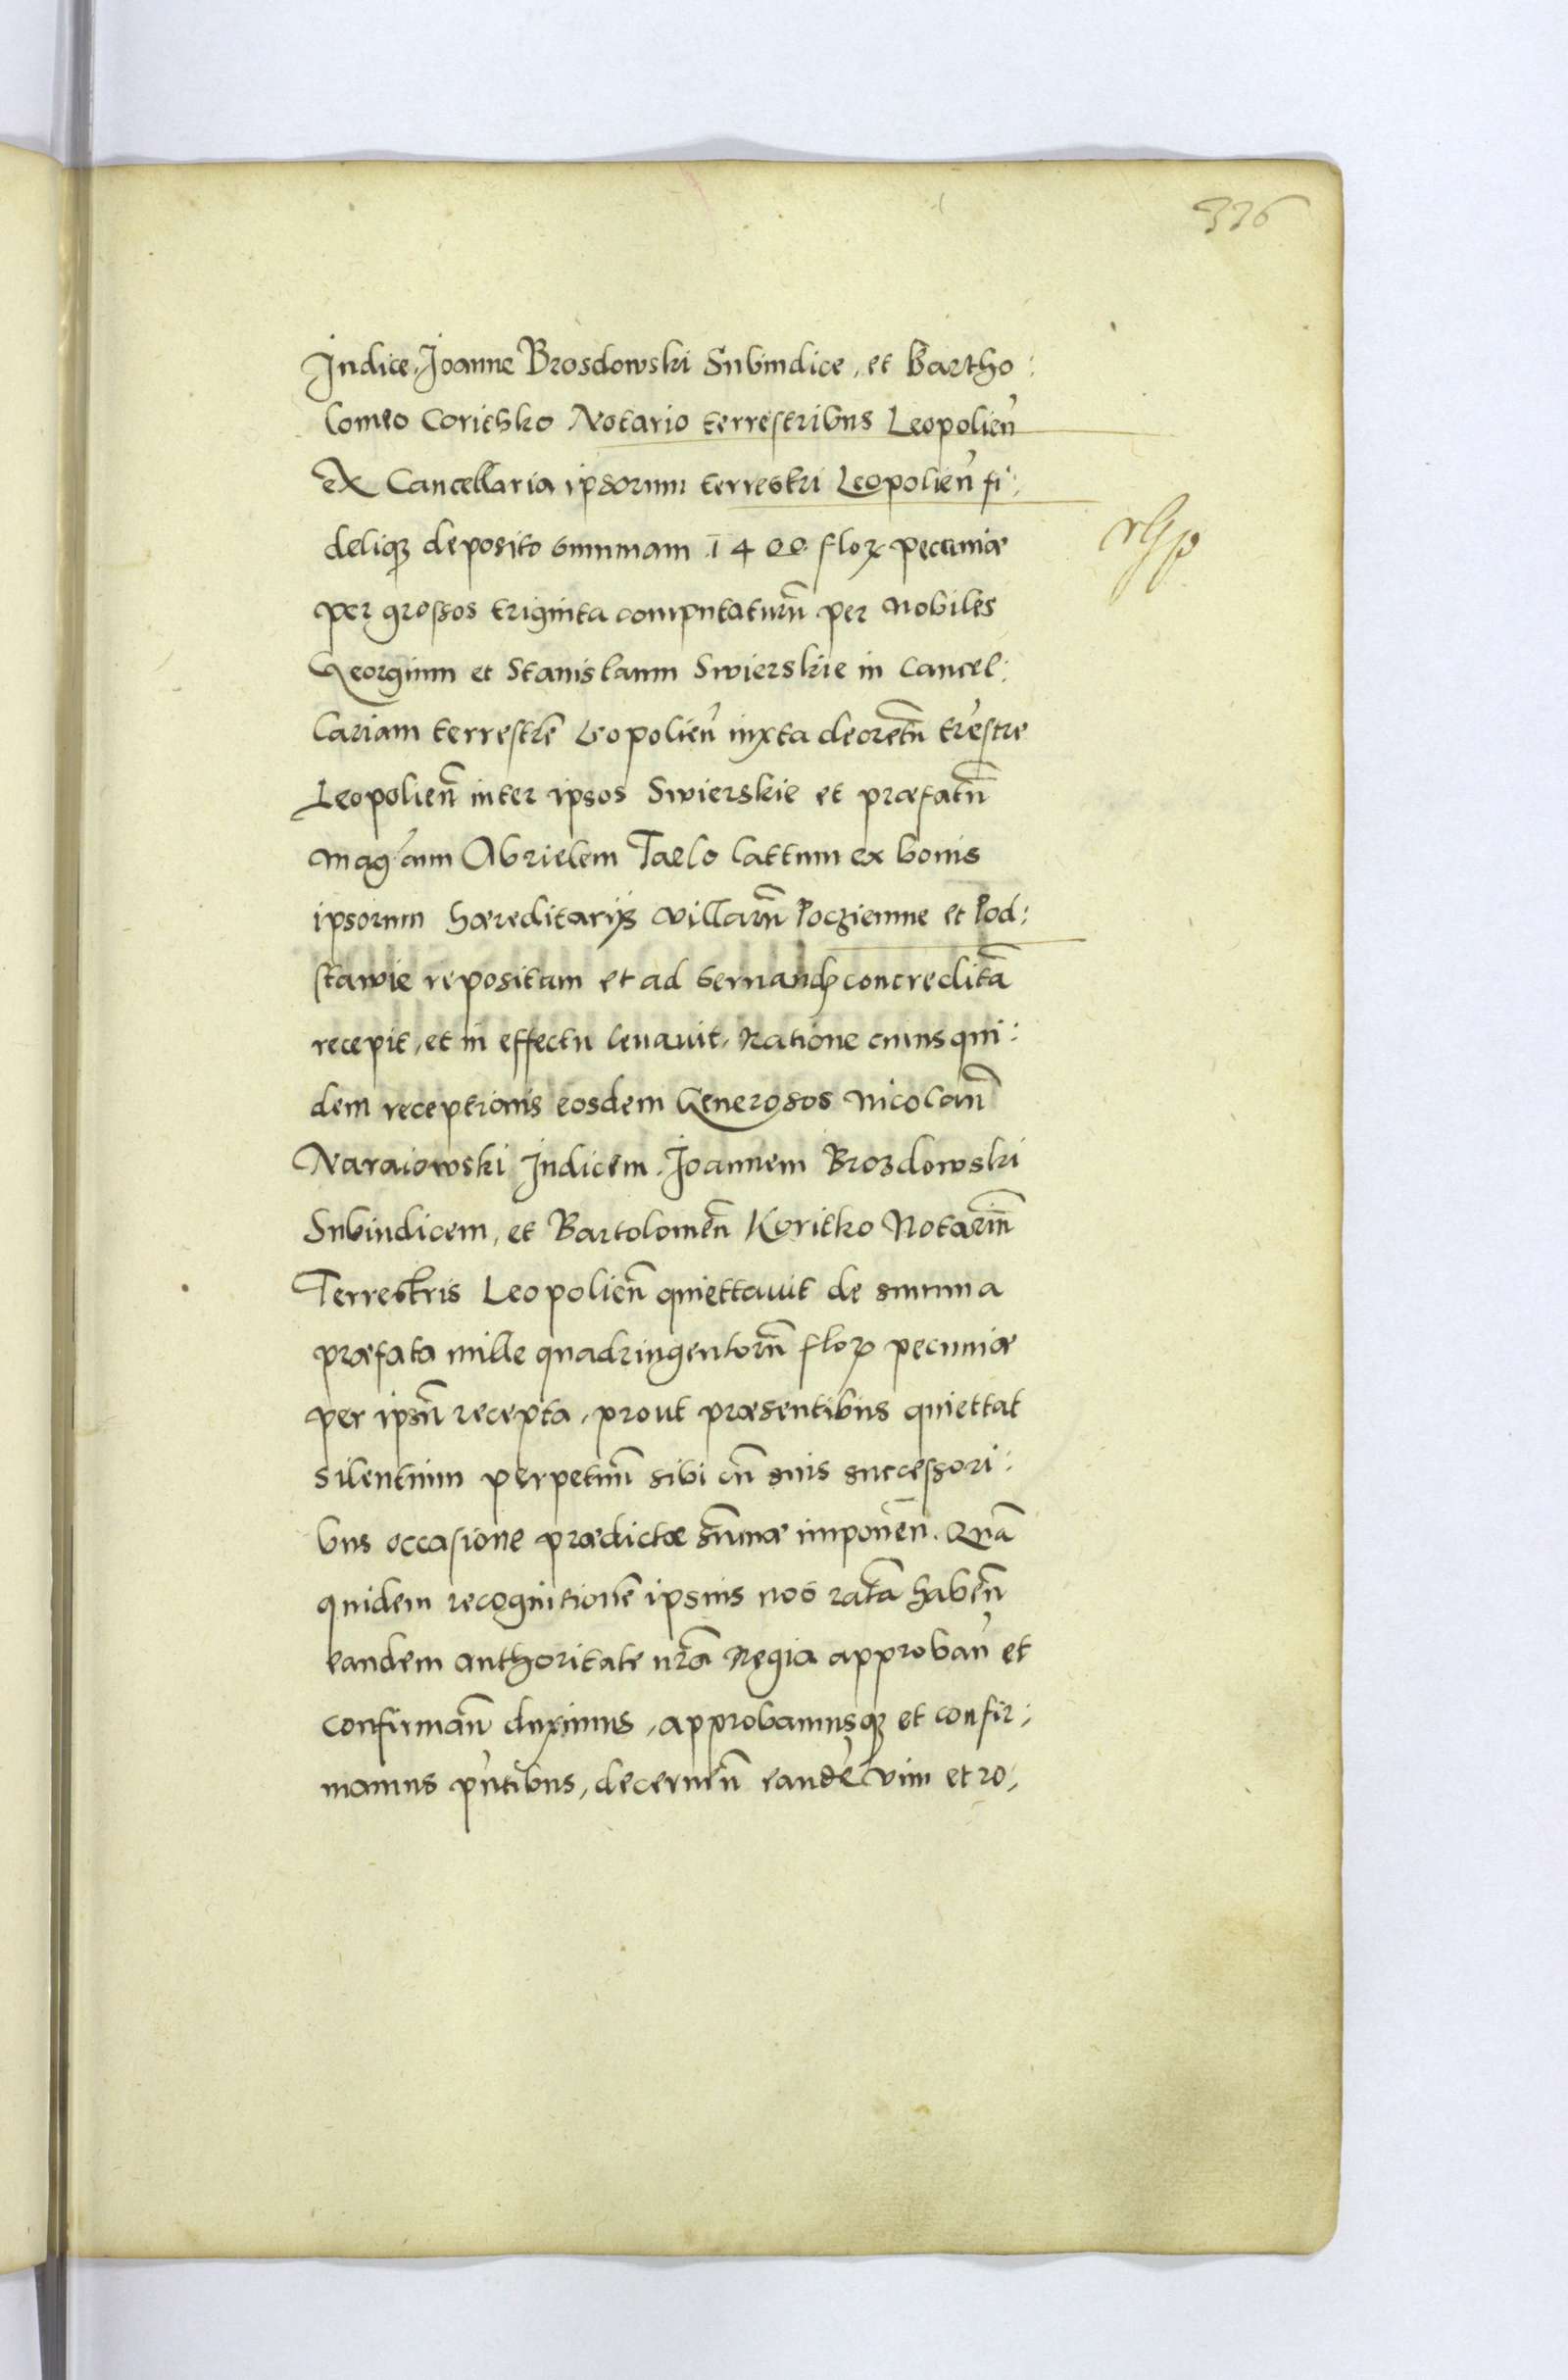 336
Judice, Joanne Brosdowski Subiudice, et Bartho:
lomeo Corithko Notario terrestribus Leopolien̄
ex Cancellaria ipsorum terrestri Leopolien̄ fi:
deliq; deposito summam 1400 floꝝ pecuniæ
per grossos triginta computaturū per Nobiles
Georgium et Stanislaum Swierskie in Cancel:
lariam terrestrē Leopolien̄ iuxta decretū tr̄estre
Leopolien̄ inter ipsos Swierskie et præfatū
mag̃cum Abrielem Taelo lattum ex bonis
ipsorum hæreditariis villarū Poczienne et Pod:
stawie repositam et ad seruand̄ concreditā
recepit, et in effectu leuauit, Ratione cuius qui:
dem receptionis eosdem Generosos Nicolaū
Naraiowski Judicem. Joannem Brozdowski
Subiudicem, et Bartolomeū Koritko Notariū
Terrestris Leopolien̄ quiettauit de summa
præfata mille quadringentorū floꝝ pecuniæ
per ipsū recepta, prout præsentibus quiettat
silentium perpetuū sibi cū suis successori:
bus occasione prædictæ sūmæ imponēn. Quā
quidem recognitionē ipsius nos ratā habēn
eandem authoritate nr̄a Regia approban̄ et
confirmān duximus, approbamusq; et confir:
mamus pn̄tibus, decernēn eandē vim et ro: